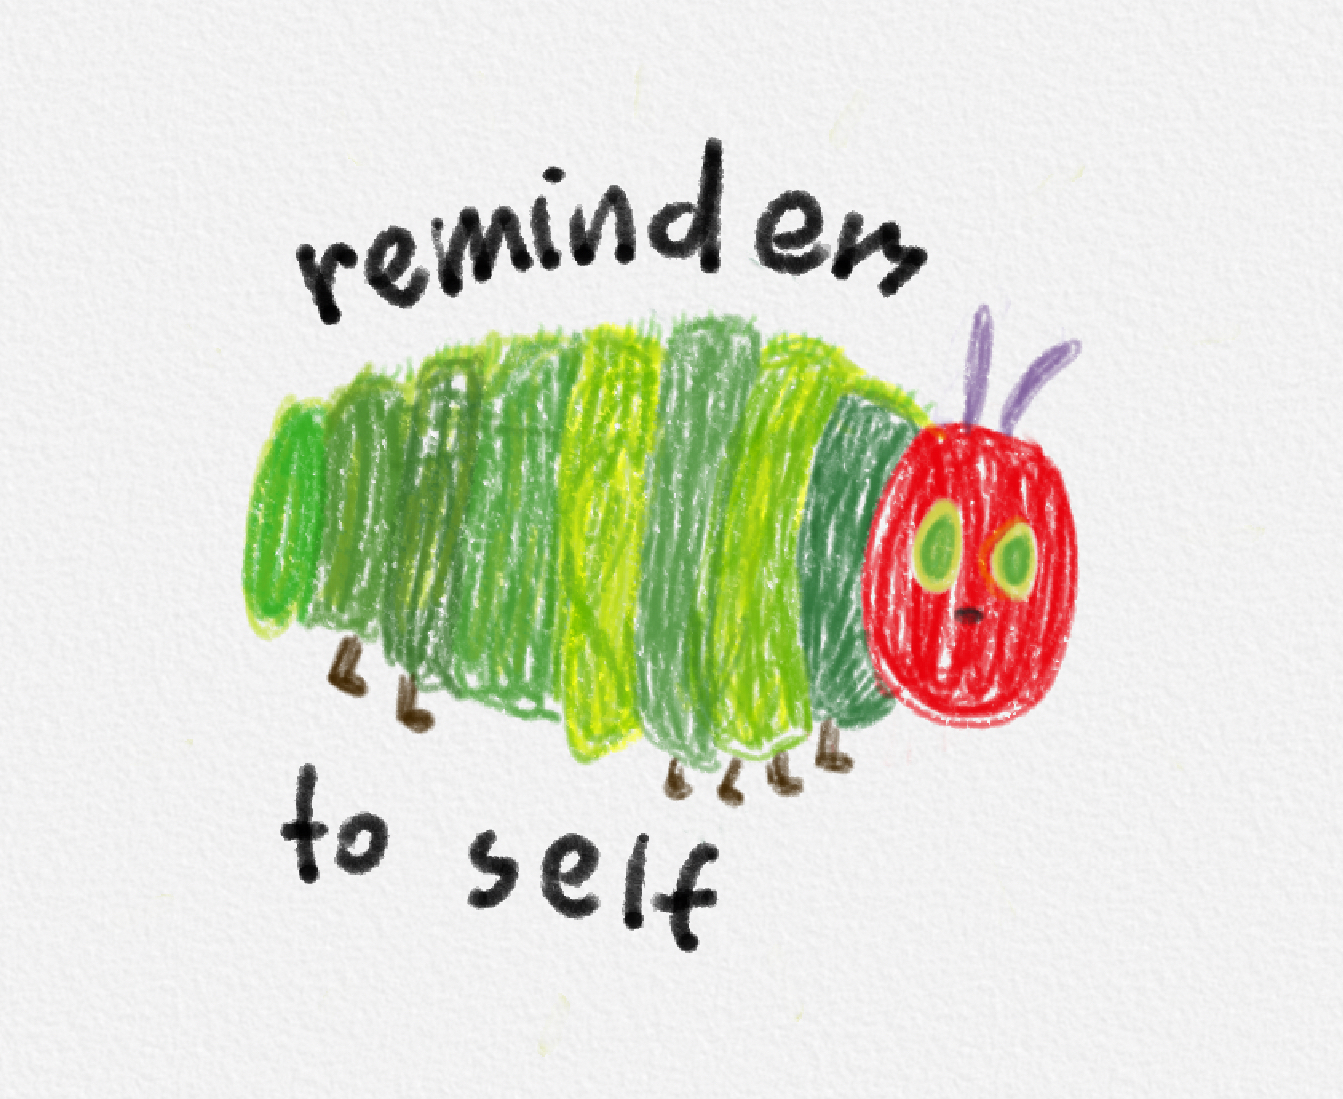 reminder
to self